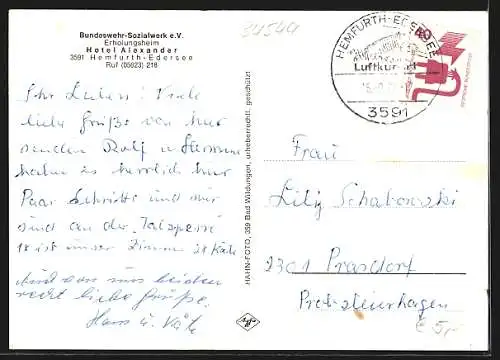 Bundeswehr-Sozialwerk e.V.
Erholungsheim
Hotel Alexander
3591 Hemfurth-Edersee
Ruf (05623) 216
Ihr Lieben! Viele
liebe Grüße von hier
senden Rolf u
haben es herrlich hier
Paar Schritte und wir
sind an der Talsperre
ist unser Zimmer
Auch von uns beiden
recht liebe Grüße.
Hans u. Käte
HAHN-FOTO, 359 Bad Wildungen, urheberrechtl. geschützt
34544
HEMFURTH-EDERSEE
Luftkurort
3591
40
Frau
Lily Schabowski
2301 Prasdorf
Probsteierhagen
€ 5,-